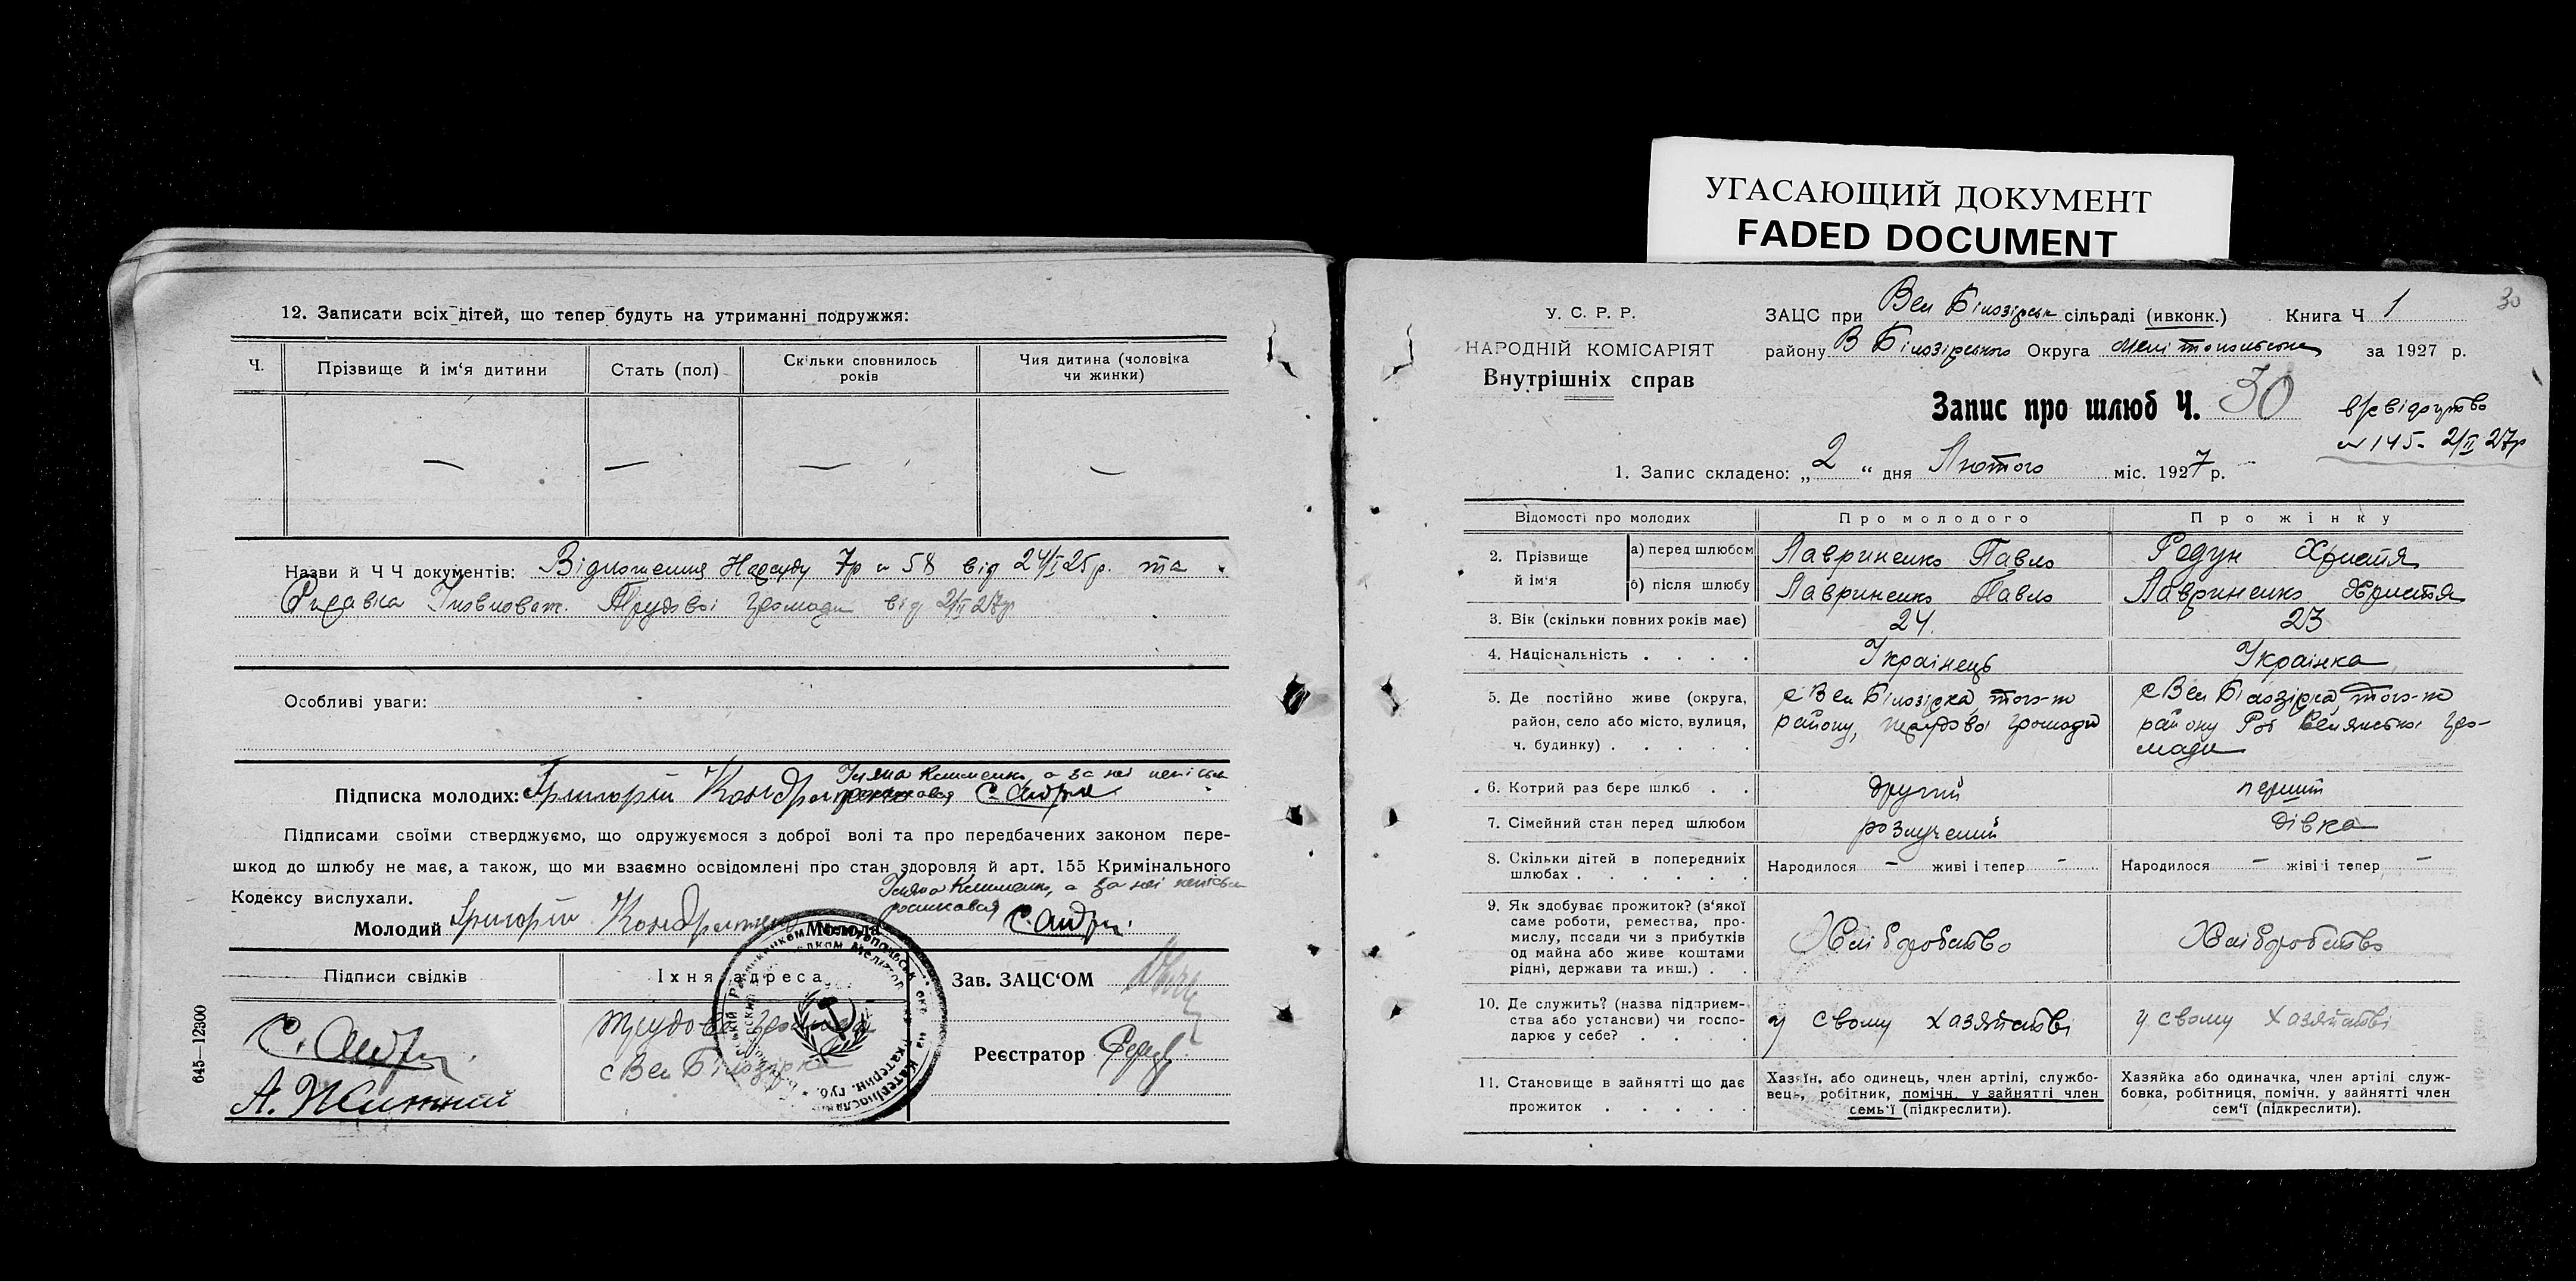 УГАСАЮЩИЙ ДОКУМЕНТ
FADED DOCUMENT
12. Записати всіх дітей, що тепер будуть на утриманні подружжя:
Ч.
Прізвище й ім‘я дитини
Стать (пол)
Скільки сповнилось
років
Чия дитина (чоловіка
чи жинки)
— — — —
Назви й Ч Ч документів: Відношення Нарсуду 7р № 58 від 24/I 25р. та
Трудової громади від 2/II 27р
Особливі уваги:
Підписка молодих: Григорій Кондратенко
Підписами своїми стверджуємо, що одружуємося з доброї волі та про передбачених законом пере-
шкод до шлюбу не має, а також, що ми взаємно освідомлені про стан здоровля й арт. 155 Кримінального
Кодексу вислухали.
Молодий Григорій Кондратенко Молода
Підписи свідків
Їхня адреса
Зав. ЗАЦС‘ОМ
Реєстратор
трудова громада
с Вел Білозірка
645—12300
30
У. С. Р. Р.
НАРОДНІЙ КОМІСАРІЯТ
Внутрішніх справ
ЗАЦС при Вел Білозірськ сільраді (ивконк.) Книга Ч 1
району В Білозірського Округа Мелітопольська за 1927 р.
Запис про шлюб Ч. 30
№ 145 - 2/II 27р
1. Запис складено: „ 2 “ дня Лютого міс. 1927 р.
Відомості про молодих
Про молодого
Про жінку
2. Прізвище
й ім‘я
а) перед шлюбом
Лавриненко Павло
Редун Христя
б) після шлюбу
Лавриненко Павло
Лавриненко Христя
3. Вік (скільки повних років має)
24
23
4. Національність . . . .
Українець
Українка
5. Де постійно живе (округа,
район, село або місто, вулиця,
ч. будинку) . . . . .
с Вел Білозірка, того-ж
району, трудової громади
с Вел Білозірка, того-ж
району Роб Селянської гро-
мади
6. Котрий раз бере шлюб . .
другий
перший
7. Сімейний стан перед шлюбом
розлучений
дівка
8. Скільки дітей в попередниіх
шлюбах . . . . . .
Народилося — живі і тепер —
Народилося — жіві і тепер —
9. Як здобуває прожиток? (з‘якої
саме роботи, ремества, про-
мислу, посади чи з прибутків
од майна або живе коштами
рідні, держави та инш.) . .
Хліборобство
Хліборобство
10. Де служить? (назва підприєм-
ства або установи) чи госпо-
дарює у себе? . . . .
у свому хазяйстві
у свому хазяйстві
11. Становище в зайнятті що дає
прожиток . . . . .
Хазяїн, або одинець, член артілі, службо-
вець, робітник, помічн. у зайнятті член
семь‘ї (підкреслити).
Хазяйка або одиначка, член артілі служ-
бовка, робітниця, помічн. у зайнятті член
сем‘ї (підкреслити).